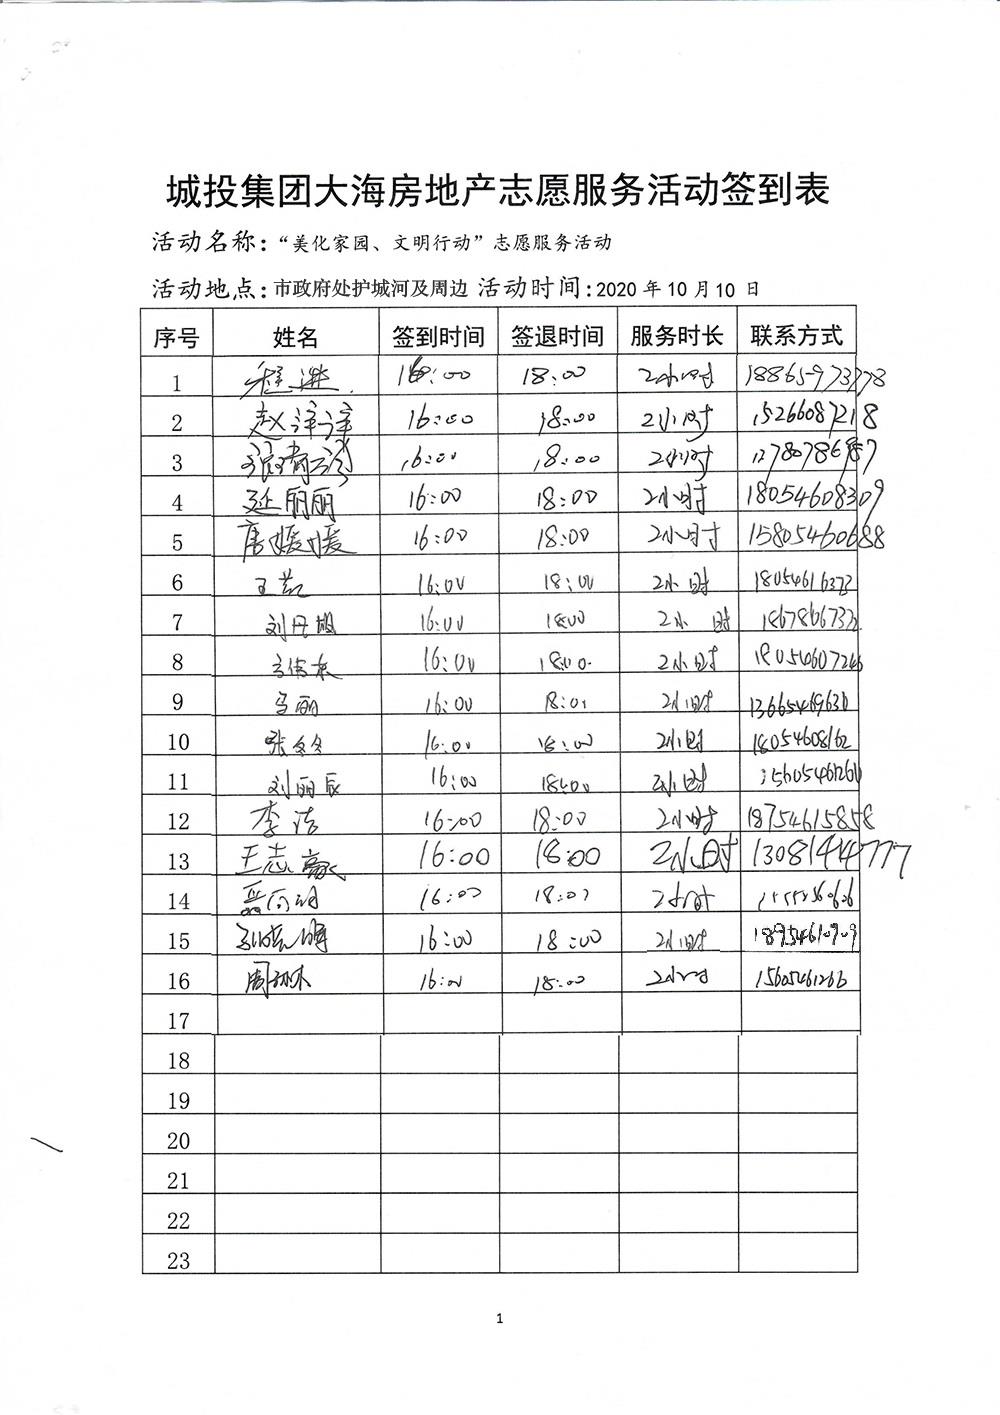 城投集团大海房地产志愿服务活动签到表
活动名称：“美化家园、文明行动”志愿服务活动
活动地点：市政府处护城河及周边 活动时间：2020 年 10 月 10 日
序号 姓名 签到时间 签退时间 服务时长 联系方式
1 程进 16:00 18:00 2小时 18865973778
2 赵洋洋 16:00 18:00 2小时 15266087218
3 16:00 18:00 2小时
4 延丽丽 16:00 18:00 2小时 18054608309
5 唐媛媛 16:00 18:00 2小时 15805460688
6 王 16:00 18:00 2小时 18054616373
7 刘丹 16:00 18:00 2小时
8 16:00 18:00 2小时 18054607246
9 马丽 16:00 18:01 2小时 13665469631
10 张冬冬 16:00 18:00 2小时 18054608162
11 刘丽辰 16:00 18:00 2小时
12 李洁 16:00 18:00 2小时 18754615858
13 王志豪 16:00 18:00 2小时 13081444777
14 16:00 18:00 2小时
15 16:00 18:00 2小时
16 周 16:00 18:00 2小时 15605461266
17
18
19
20
21
22
23
1